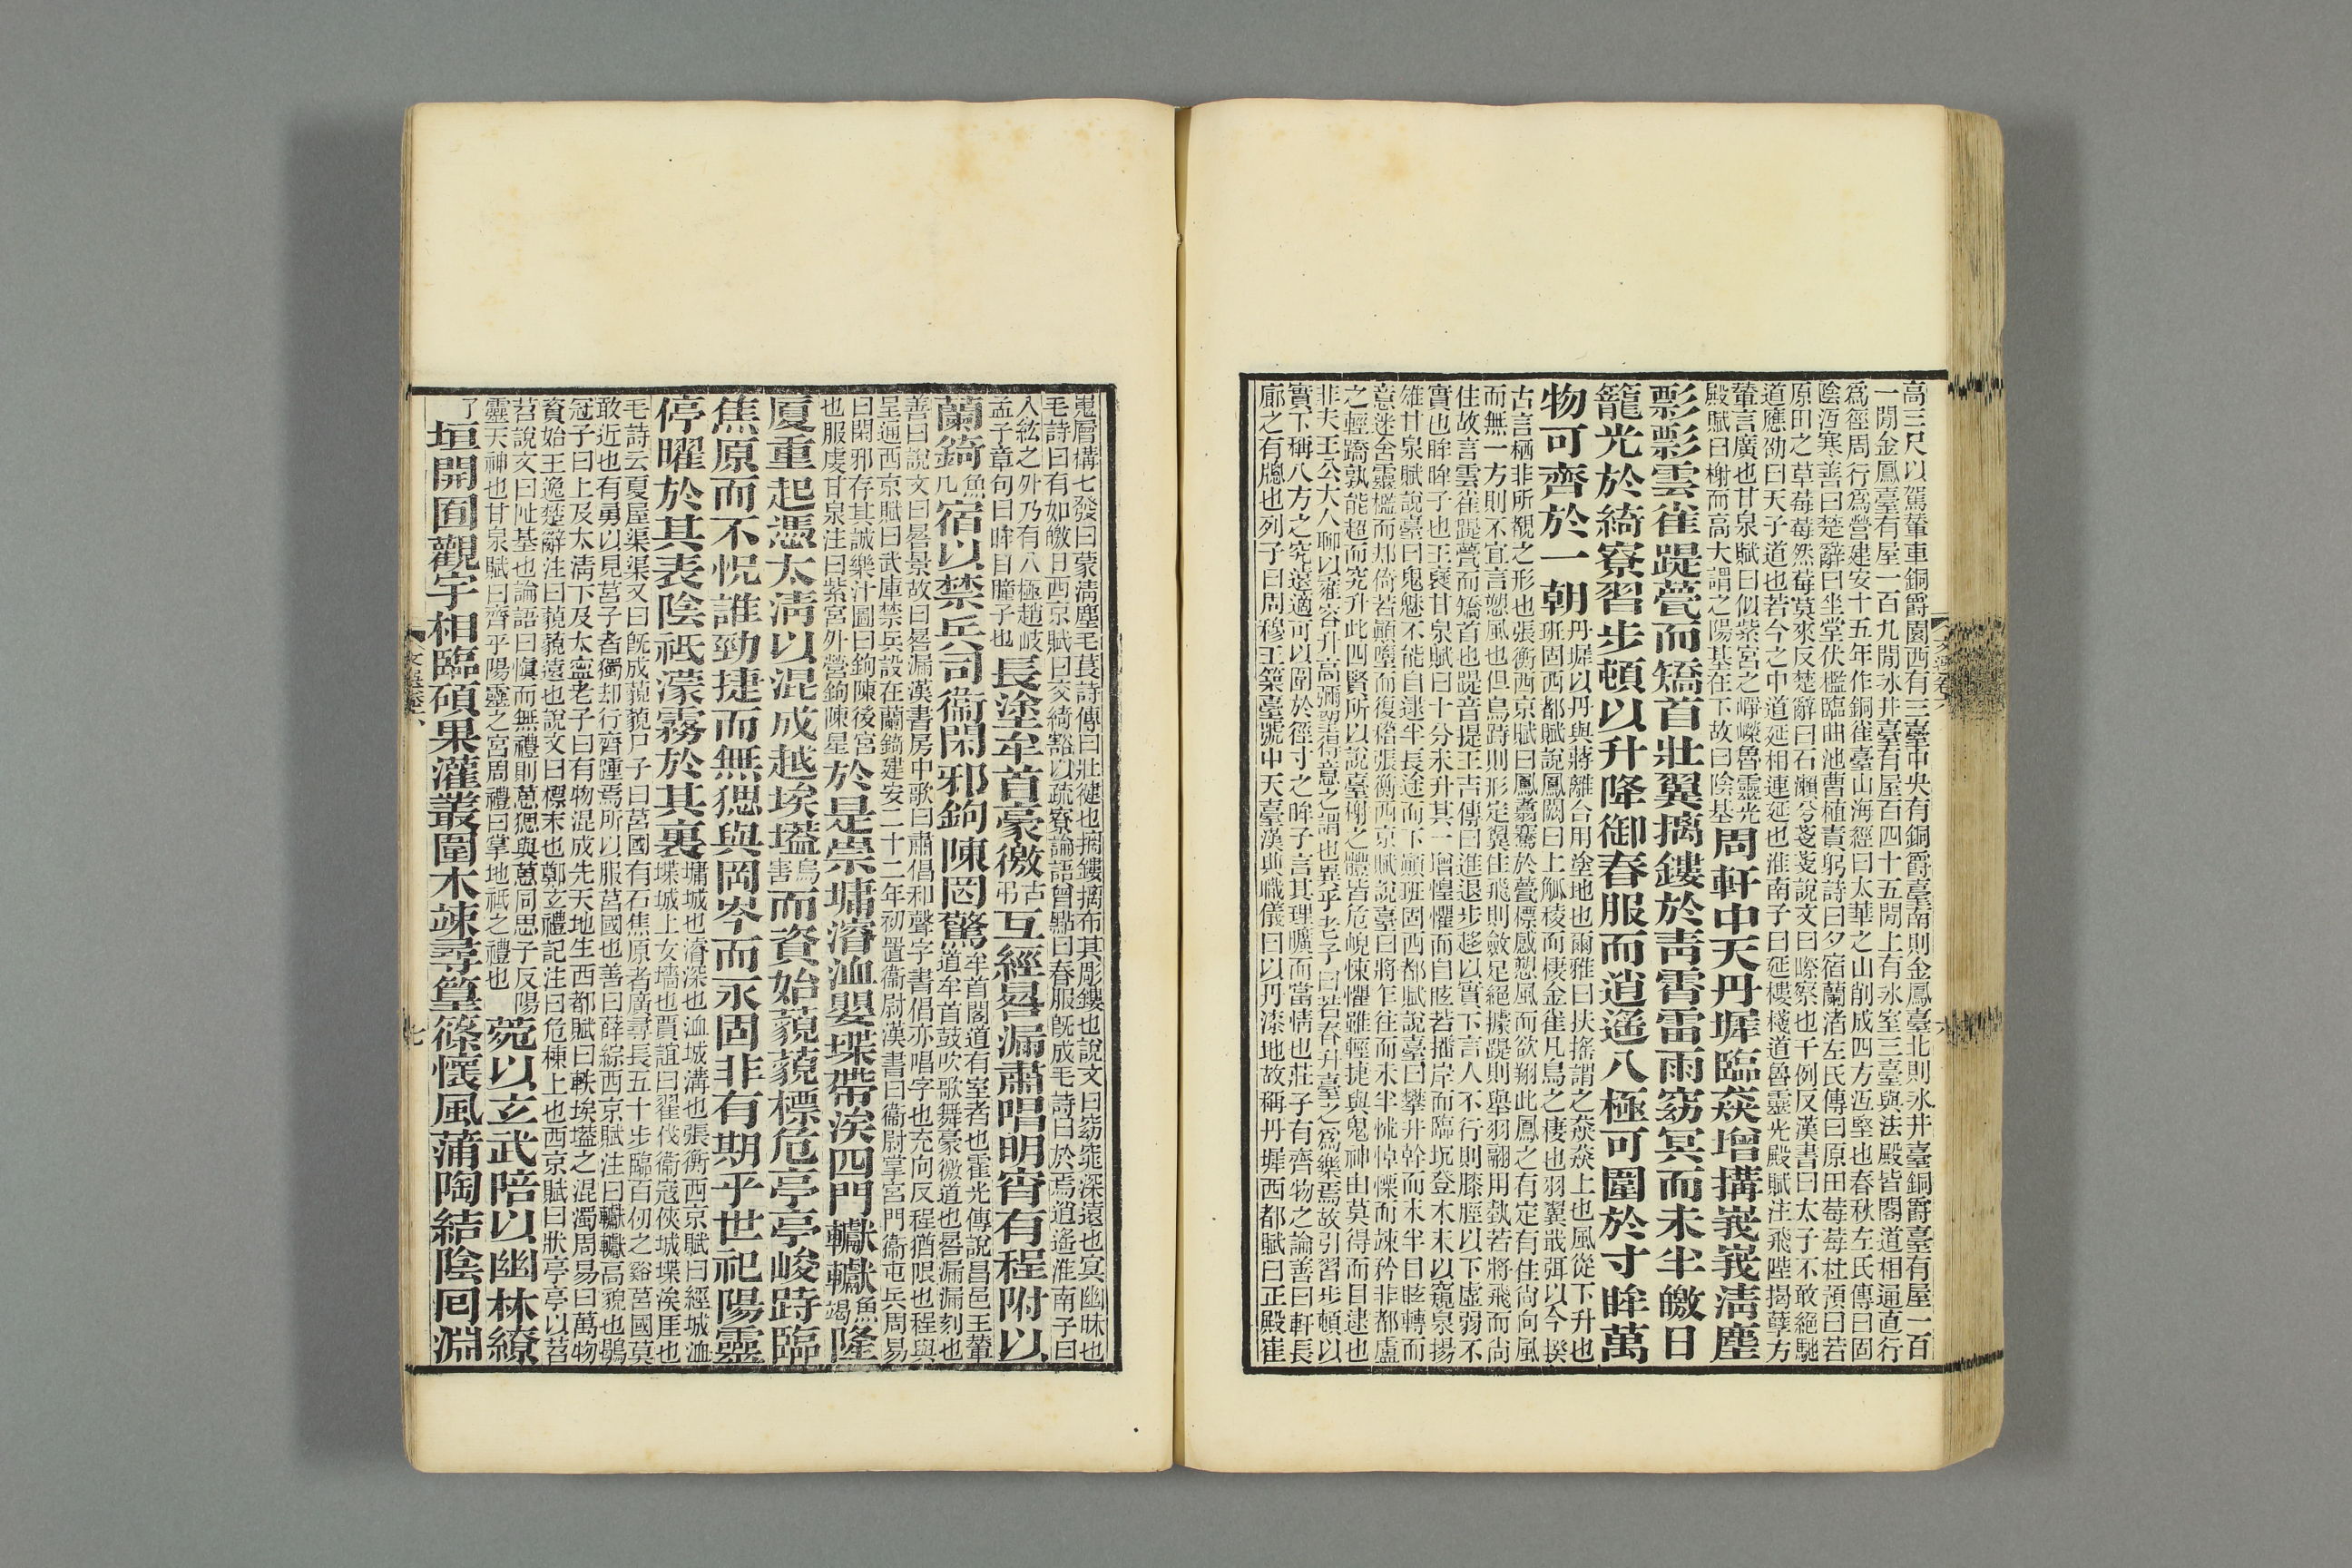 高三尺以駕輦車銅爵園西有三臺中央有銅爵臺南則金鳳臺北則冰井臺銅爵臺有屋一百
一閒金鳳臺有屋一百九閒冰井臺有屋百四十五閒上有冰室三臺與法殿皆閣道相通直行
爲徑周行爲營建安十五年作銅雀臺山海經曰太華之山削成四方冱堅也春秋左氏傳曰固
陰冱寒善曰楚辭曰坐堂伏檻臨曲池曹植責躬詩曰夕宿蘭渚左氏傳曰原田莓莓杜預曰若
原田之草莓莓然莓莫來反楚辭曰石瀨兮淺淺說文曰際察也千例反漢書曰太子不敢絕馳
道應劭曰天子道也若今之中道延相連延也淮南子曰延樓棧道魯靈光殿賦注飛陛揭孽方
輦言廣也甘泉賦曰似紫宮之崢嶸魯靈光
殿賦曰榭而高大謂之陽基在下故曰陰基
周軒中天丹墀臨猋增搆峩峩淸塵
彯彯雲雀踶甍而矯首壯翼摛鏤於靑霄雷雨窈冥而未半皦日
籠光於綺寮習步頓以升降御春服而逍遙八極可圍於寸眸萬
物可齊於一朝
丹墀以丹與蔣離合用塗地也爾雅曰扶搖謂之猋猋上也風從下升也
班固西都賦說鳳闕曰上觚稜而棲金雀凡鳥之棲也羽翼戢弭以今揆
古言栖非所覩之形也張衡西京賦曰鳳翥騫於甍標感愬風而欲翔此鳳之有定有住尙向風
而無一方則不宜言愬風也但鳥跱則形定翼住飛則斂足絕據踶則舉羽翮用埶若將飛而尙
住故言雲雀踶甍而矯首也踶音提王吉傳曰進退步趍以實下言人不行則膝脛以下虛弱不
實也眸眸子也王襃甘泉賦曰十分未升其一增惶懼而自眩若播岸而臨坑登木末以窺泉揚
雄甘泉賦說臺曰鬼魅不能自逮半長途而下顚班固西都賦說臺曰攀井幹而未半目眩轉而
意迷舍靈檻而却倚若顚墮而復稽張衡西京賦說臺曰將乍往而未半怵悼慄而竦矜非都盧
之輕蹻孰能超而究升此四賢所以說臺榭之體皆危峴悚懼雖輕捷與鬼神由莫得而自逮也
非夫王公大人聊以雍容升高彌望得意之謂也異乎老子曰若春升臺之爲樂焉故引習步頓以
實下稱八方之究遠適可以圍於徑寸之眸子言其理曠而當情也莊子有齊物之論善曰軒長
廊之有牕也列子曰周穆王築臺號中天臺漢典職儀曰以丹漆地故稱丹墀西都賦曰正殿崔
嵬層構七發曰蒙淸塵毛萇詩傳曰壯健也摛鏤摛布其彫鏤也說文曰窈窕深遠也冥幽昧也
毛詩曰有如皦日西京賦曰交綺豁以疏寮論語曾點曰春服旣成毛詩曰於焉逍遙淮南子曰
八紘之外乃有八極趙岐
孟子章句曰眸目瞳子也
長塗牟首豪徼
古
弔
互經晷漏肅唱明宵有程附以
蘭錡
魚
几
宿以禁兵司衞閑邪鉤陳罔驚
牟首閣道有室者也霍光傳說昌邑王輦
道牟首鼓吹歌舞豪徼道也晷漏漏刻也
善曰說文曰晷景故曰晷漏漢書房中歌曰肅倡和聲字書倡亦唱字也充向反程猶限也程與
呈通西京賦曰武庫禁兵設在蘭錡建安二十二年初置衞尉漢書曰衞尉掌宮門衞屯兵周易
曰閑邪存其誠樂汁圖曰鉤陳後宮
也服虔甘泉注曰紫宮外營鉤陳星
於是崇墉濬洫嬰堞帶涘四門轥轥
魚
竭
隆
厦重起憑太淸以混成越埃壒
烏
害
而資始藐藐標危亭亭峻跱臨
焦原而不怳誰勁捷而無猲與岡岑而永固非有期乎世祀陽靈
停曜於其表陰祇濛霧於其裏
墉城也濬深也洫城溝也張衡西京賦曰經城洫
堞城上女墻也賈誼曰翟伐衞寇俠城堞涘厓也
毛詩云夏屋渠渠又曰旣成藐藐尸子曰莒國有石焦原者廣尋長五十步臨百仞之谿莒國莫
敢近也有勇以見莒子者獨却行齊踵焉所以服莒國也善曰薛綜西京賦注曰轥轥高貌也鶡
冠子曰上及太淸下及太寍老子曰有物混成先天地生西都賦曰軼埃壒之混濁周易曰萬物
資始王逸楚辭注曰藐藐遠也說文曰標末也鄭玄禮記注曰危棟上也西京賦曰狀亭亭以苕
苕說文曰阯基也論語曰愼而無禮則葸猲與葸同思子反陽
靈天神也甘泉賦曰齊乎陽靈之宮周禮曰掌地祇之禮也
菀以玄武陪以幽林繚
了
垣開囿觀宇相臨碩果灌叢圍木竦尋篁篠懷風蒲陶結陰回淵
七